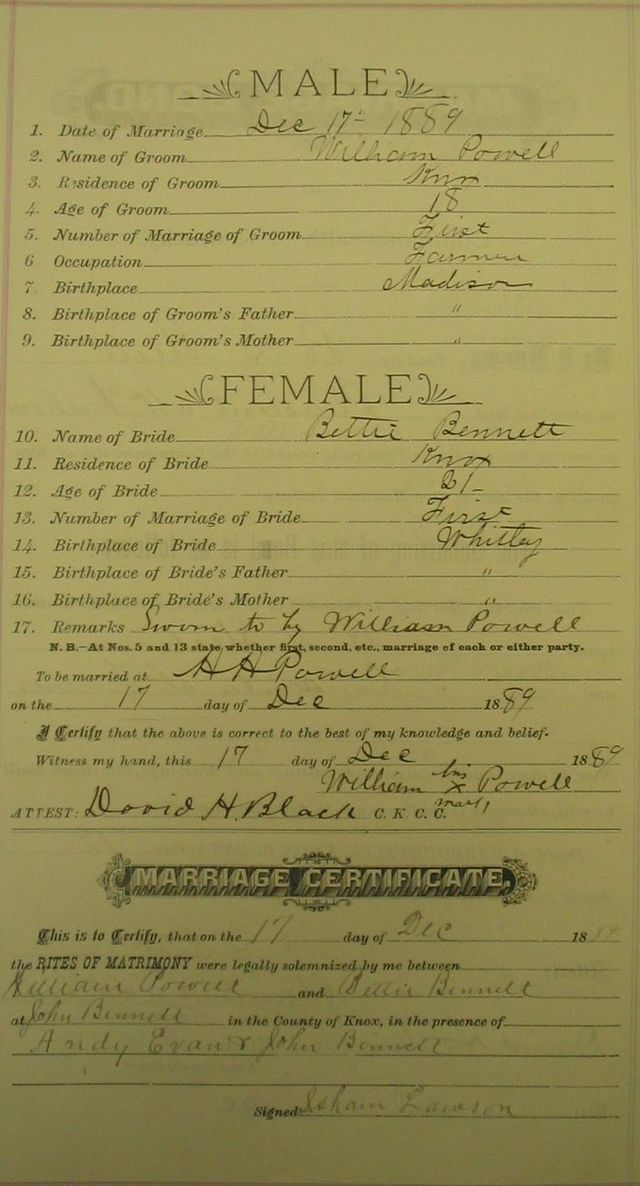 MALE
1. Date of Marriage Dec 17th 1889
2. Name of Groom William Powell
3. Residence of Groom Knox
4. Age of Groom 18
5. Number of Marriage of Groom First
6 Occupation Farmer
7 Birthplace Madison
8. Birthplace of Groom's Father "
9. Birthplace of Groom's Mother "
FEMALE
10. Name of Bride Bettie Bennett
11. Residence of Bride Knox
12. Age of Bride 21
13. Number of Marriage of Bride First
14. Birthplace of Bride Whitley
15. Birthplace of Bride's Father "
16. Birthplace of Bride's Mother "
17. Remarks Sworn to by William Powell
N. B.—At Nos. 5 and 13 state whether first, second, etc., marriage of each or either party.
To be married at H H Powell
on the 17 day of Dec 1889
I Certify that the above is correct to the best of my knowledge and belief.
Witness my hand, this 17 day of Dec 1889
William his x mark Powell
ATTEST: David H. Black C. K. C. C.
MARRIAGE CERTIFICATE
This is to Certify, that on the 17 day of Dec 1889
the RITES OF MATRIMONY were legally solemnized by me between
William Powell and Bettie Bennett
at John Bennett in the County of Knox, in the presence of
Andy Evan & John Bennett
Signed Isham Lawson